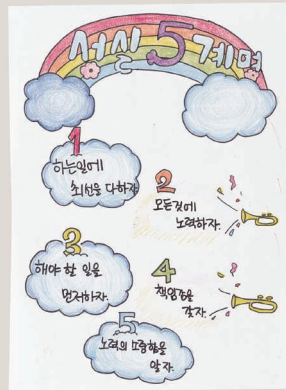 성실 5계명
1
하는일에
최선을 다하자
2
모든것에
노력하자.
3
해야 할 일을
먼저하자.
4
책임감을
갖자.
5
노력의 소중함을
알자.